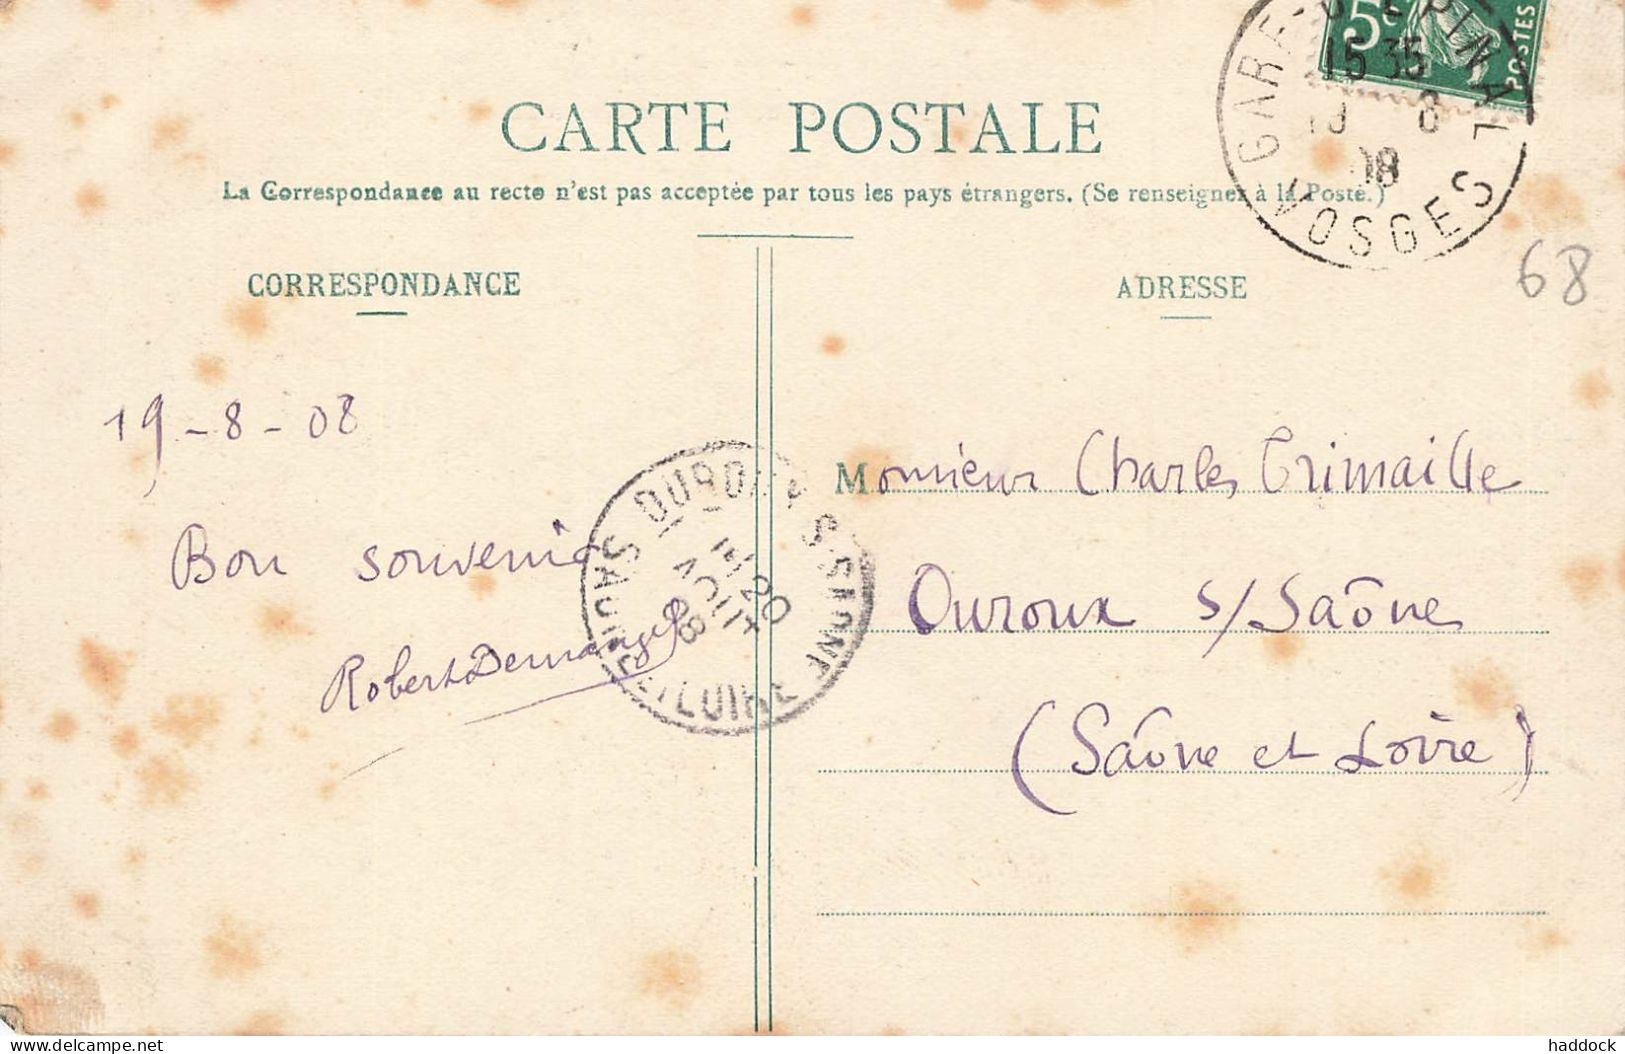 5c
POSTES
GARE D'EPINAL
15 35
19 8
08
VOSGES
CARTE POSTALE
La Correspondance au recto n'est pas acceptée par tous les pays étrangers. (Se renseigner à la Poste.)
68
CORRESPONDANCE
ADRESSE
19-8-08
Bon souvenir
Robert Demange
OUROUX S. SAONE
20
AOUT
08
SAONE ET LOIRE
Monsieur Charles Grimaille
Ouroux s/ Saône
(Saône et Loire)
www.delcampe.net
haddock